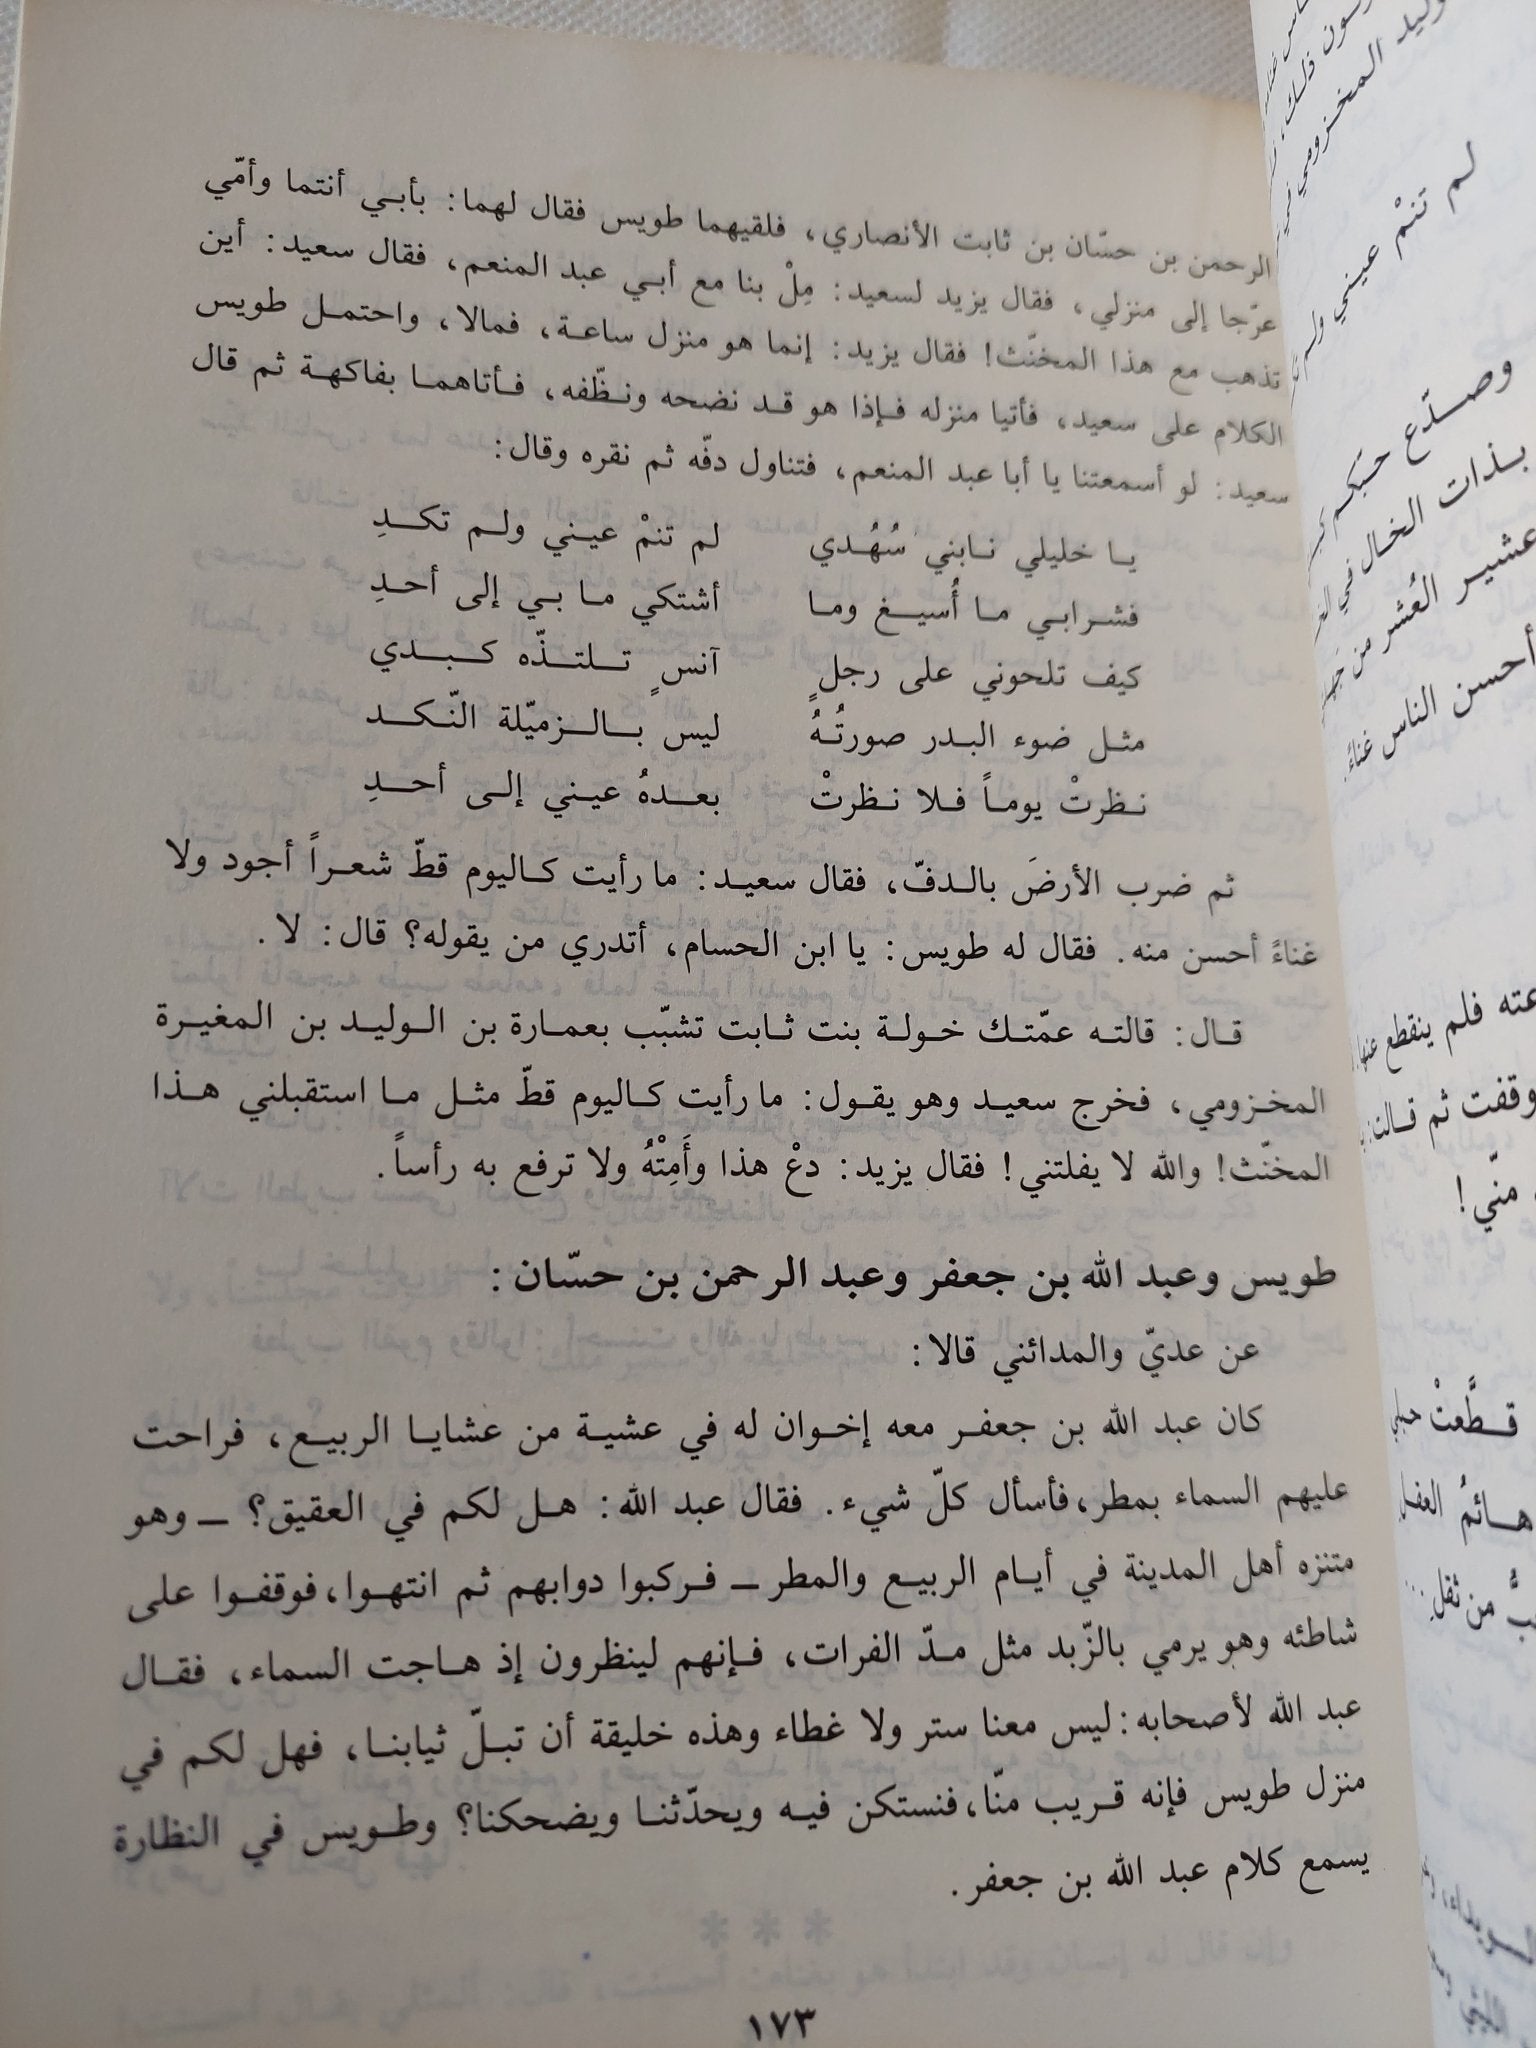 الرحمن بن حسّان بن ثابت الأنصاري، فلقيهما طويس فقال لهما: بأبي أنتما وأمّي
عرّجا إلى منزلي، فقال يزيد لسعيد: مِلْ بنا مع أبي عبد المنعم، فقال سعيد: أين
تذهب مع هذا المخنّث! فقال يزيد: إنما هو منزل ساعة، فمالا، واحتمل طويس
الكلام على سعيد، فأتيا منزله فإذا هو قد نضحه ونظّفه، فأتاهما بفاكهة ثم قال
سعيد: لو أسمعتنا يا أبا عبد المنعم، فتناول دفّه ثم نقره وقال:
يا خليلي نابني سُهُدي لم تنمْ عيني ولم تكدِ
فشرابي ما أُسيغ وما أشتكي ما بي إلى أحدِ
كيف تلحوني على رجلٍ آنسٍ تلتذّه كبدي
مثل ضوء البدر صورتُهُ ليس بالزميّلة النّكد
نظرتْ يوماً فلا نظرتْ بعدهُ عيني إلى أحدِ
ثم ضرب الأرضَ بالدفّ، فقال سعيد: ما رأيت كاليوم قطّ شعراً أجود ولا
غناءً أحسن منه. فقال له طويس: يا ابن الحسام، أتدري من يقوله؟ قال: لا.
قال: قالته عمّتك خولة بنت ثابت تشبّب بعمارة بن الوليد بن المغيرة
المخزومي، فخرج سعيد وهو يقول: ما رأيت كاليوم قطّ مثل ما استقبلني هذا
المخنّث! والله لا يفلتني! فقال يزيد: دعْ هذا وأَمِتْهُ ولا ترفع به رأساً.
طويس وعبد الله بن جعفر وعبد الرحمن بن حسّان:
عن عديّ والمدائني قالا:
كان عبد الله بن جعفر معه إخوان له في عشية من عشايا الربيع، فراحت
عليهم السماء بمطر، فأسأل كلّ شيء. فقال عبد الله: هل لكم في العقيق؟ ــ وهو
متنزه أهل المدينة في أيام الربيع والمطر ــ فركبوا دوابهم ثم انتهوا، فوقفوا على
شاطئه وهو يرمي بالزّبد مثل مدّ الفرات، فإنهم لينظرون إذ هاجت السماء، فقال
عبد الله لأصحابه: ليس معنا ستر ولا غطاء وهذه خليقة أن تبلّ ثيابنا، فهل لكم في
منزل طويس فإنه قريب منّا، فنستكن فيه ويحدّثنا ويضحكنا؟ وطويس في النظارة
يسمع كلام عبد الله بن جعفر.
١٧٣
لم تنمْ عيني ولم
وصدّع حبّكم
بذات الخال في
عشير العُشر من
أحسن الناس غناءً.
عته فلم ينقطع عنها
وقفت ثم قالت:
منّي!
قطَّعتْ حبلي
هائمُ العقل
من ثقلِ